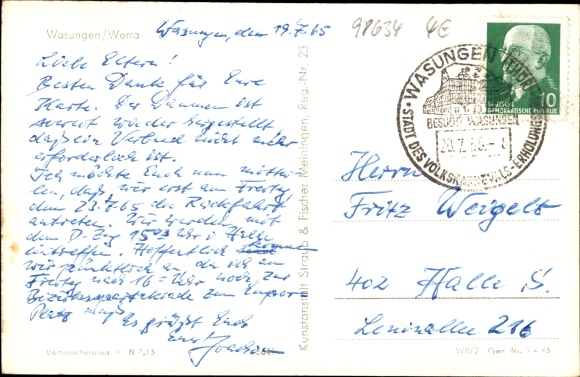 Wasungen/Werra
Wasungen, den 19.7.65
98634 4€
Liebe Eltern!
Besten Dank für Eure
Karte. Der Daumen ist
soweit wieder hergestellt
daß ein Verband nicht mehr
erforderlich ist.
Ich möchte Euch nun mittei-
len, daß wir erst am Freitag,
dem 23.7.65 die Rückfahrt
antreten. Wir werden mit
dem D-Zug 15 Uhr i. Halle
eintreffen. Hoffentlich kommen
wir pünktlich an, da ich am
Freitag nach 16 Uhr noch zur
Bezirkssparkasse zum
Platz muß.
Es grüßt Euch
Euer Joachim
Verbraucherpreis M 0,15
Kunstanstalt Straub & Fischer Meiningen, Rsg.-Nr. 23
WASUNGEN
BESUCHT WASUNGEN
20.7.65
STADT DES VOLKSKARNEVALS · ERHOLUNGSORT
DEUTSCHE
DEMOKRATISCHE REPUBLIK
10
Herrn
Fritz Weigelt
402 Halle S.
Leninallee 216
V/11/2 Gen. Nr. 9.4.65